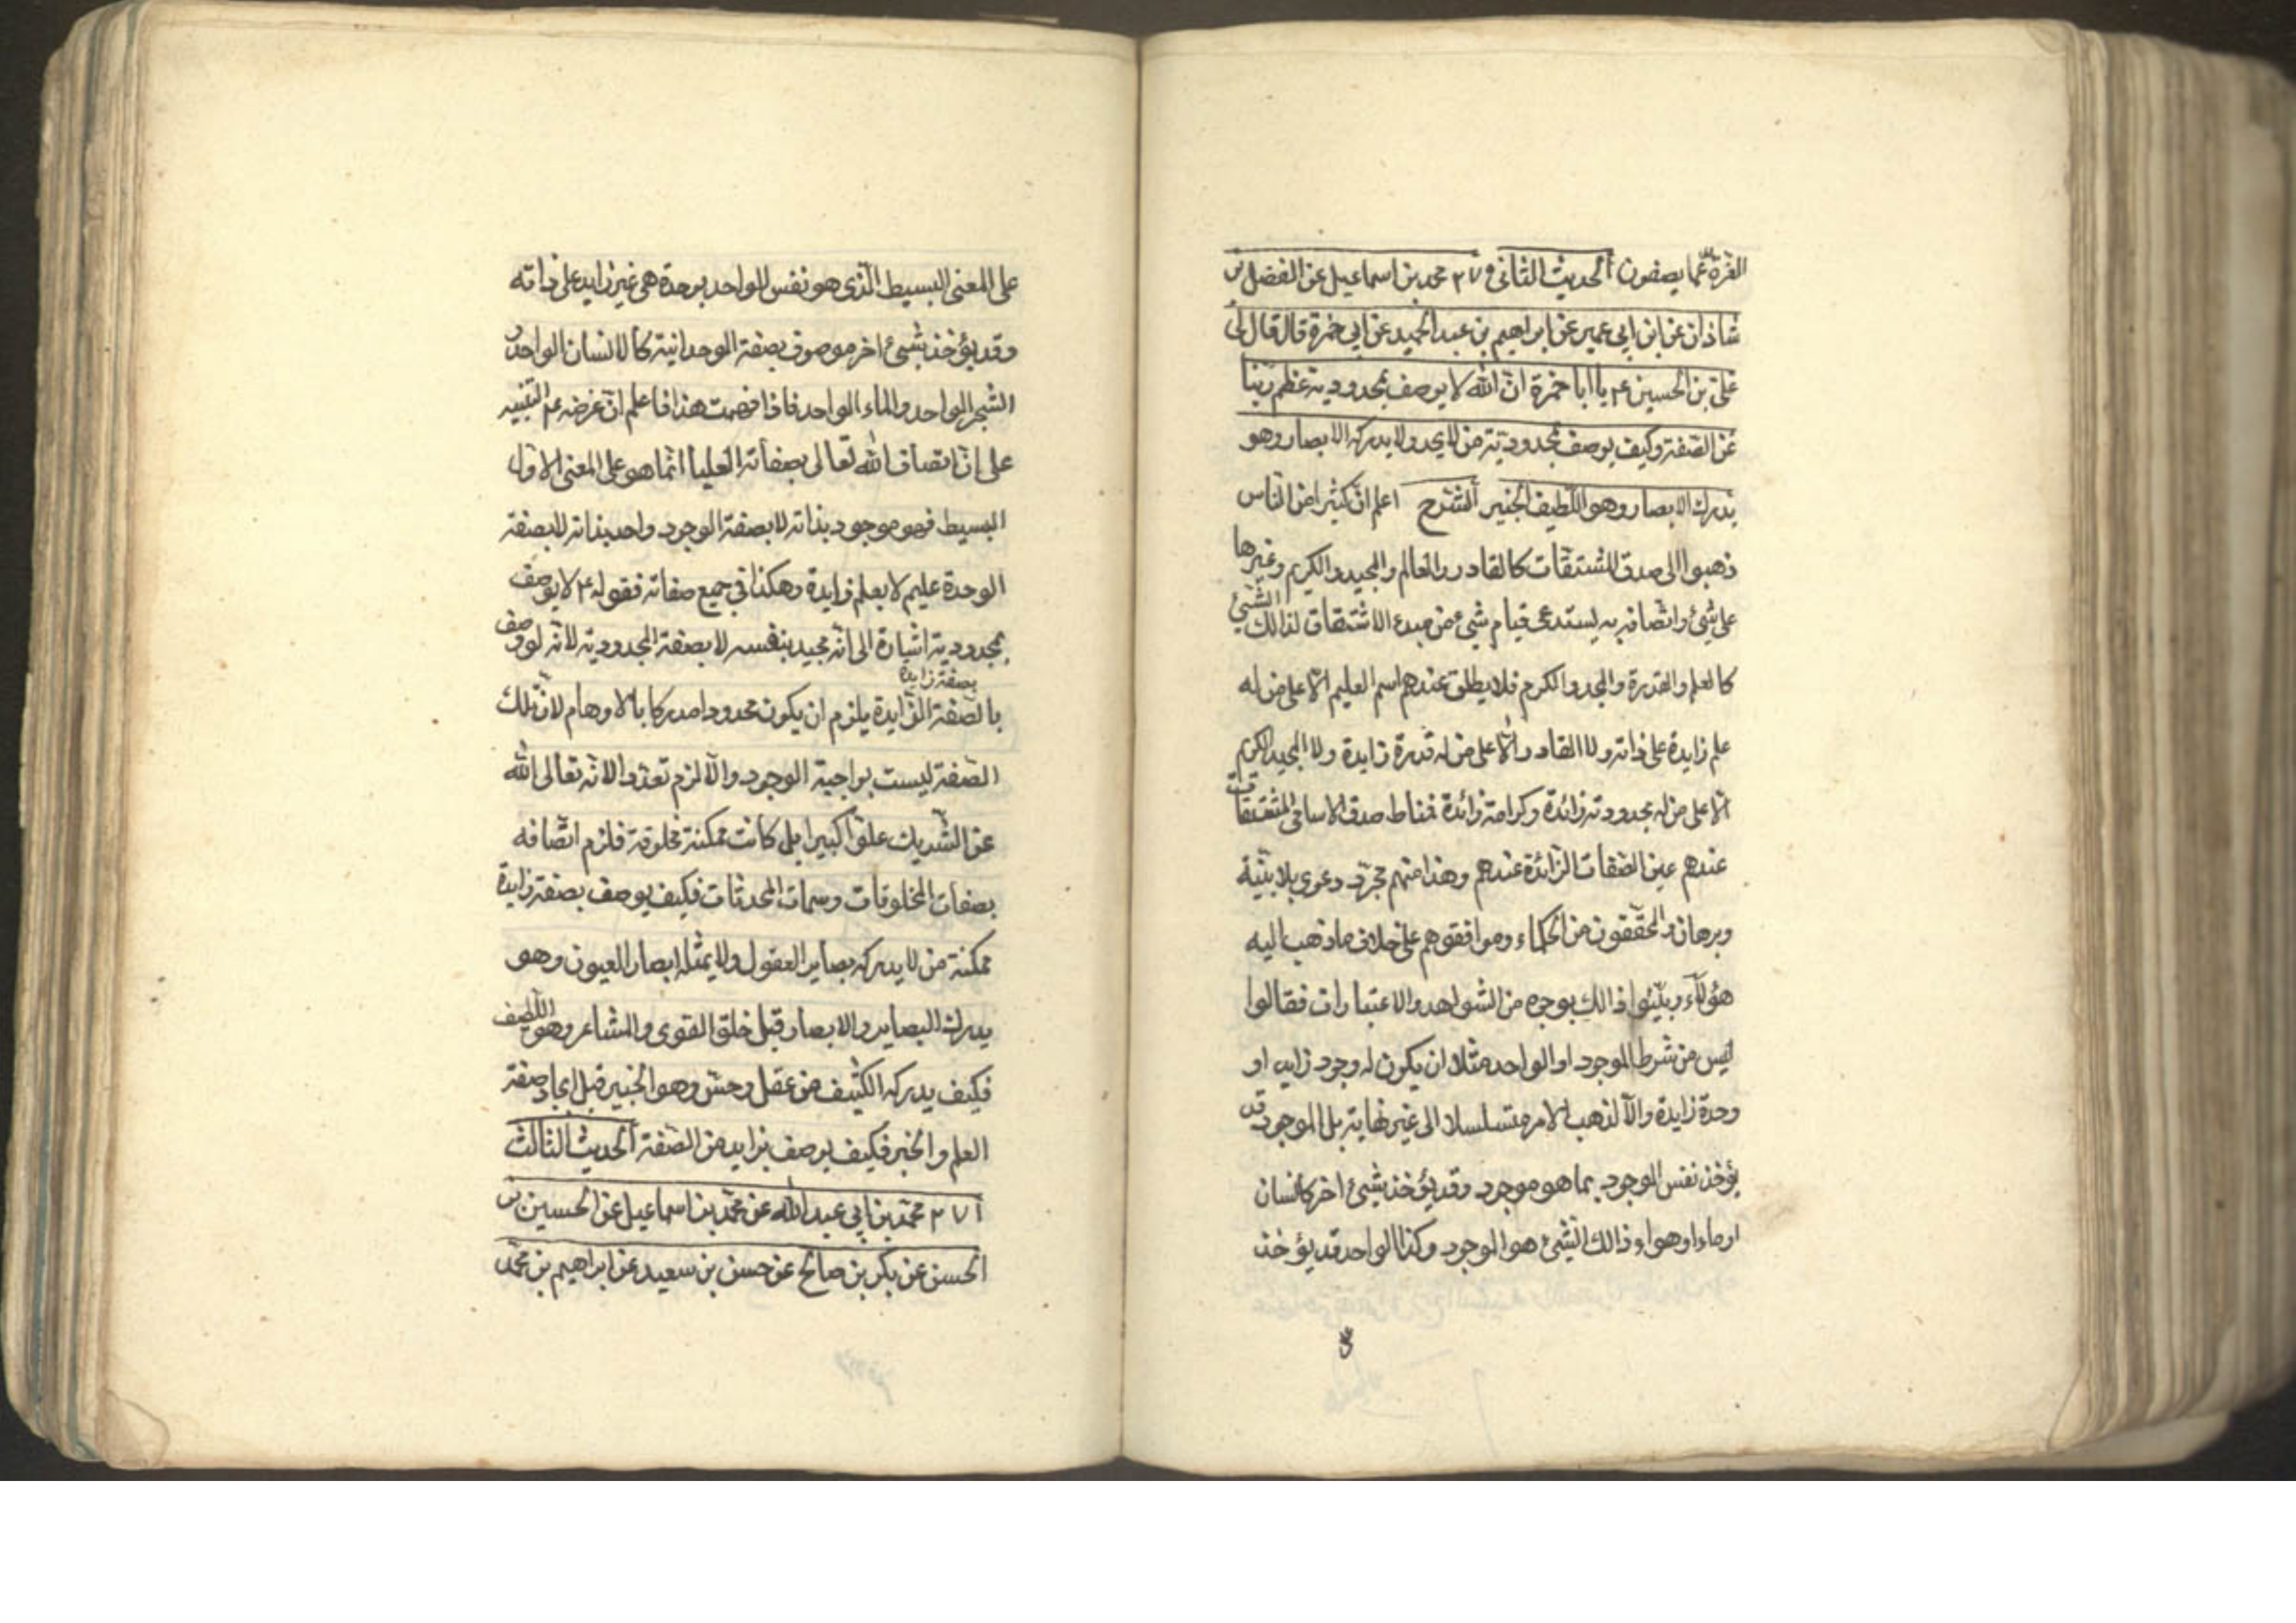 العزة عما يصفون الحديث الثاني و ٢٧ محمد بن اسماعيل عن الفضل بن
شاذان عن ابن ابي عمير عن ابراهيم بن عبد الحميد عن ابي حمزة قال قال لي
علي بن الحسين ع يا ابا حمزة ان الله لا يوصف بمحدودية عظم ربنا
عن الصفة وكيف يوصف بمحدودية من لا يحد ولا يدركه الابصار وهو
يدرك الابصار وهو اللطيف الخبير الشرح اعلم ان كثيرا من الناس
ذهبوا الى صدق المشتقات كالقادر والعالم والمجيد والكريم وغيرها
على شئ واتصافه به يستدعى قيام شئ من مبدء الاشتقاق لذالك الشئ
كالعلم والقدرة والمجد والكرم فلا يطلق عندهم اسم العليم الا على من له
علم زايدة على ذاته ولا القادر الا على من له قدرة زايدة ولا المجيد الكريم
الا على من له مجدودته زائدة وكرامة زائدة فمناط صدق الاسامي المشتقات
عندهم عين الصفات الزائدة عندهم وهذا منهم مجرد دعوى بلا بينة
وبرهان والمحققون من الحكماء وموافقوهم على خلاف ما ذهب اليه
هؤلاء وبينوا ذالك بوجوه من الشواهد والاعتبارات فقالوا
ليس من شرط الموجود او الواحد مثلا ان يكون له وجود زايد او
وحدة زايدة والا لذهب الامر متسلسلا الى غير نهاية بل الموجود قد
يؤخذ نفس الموجود بما هو موجود وقد يؤخذ بشئ اخر كانسان
او ماء او هواء وذالك الشئ هو الموجود وكذا الواحد قد يؤخذ
على المعنى البسيط الذي هو نفس الواحد بوحدة هى غير زايد على ذاته
وقد يؤخذ بشئ اخر موصوف بصفة الوحدانية كالانسان الواحد و
الشجر الواحد والماء الواحد فاذا فهمت هذا فاعلم ان غرضه ع التنبيه
على ان اتصاف الله تعالى بصفاته العليا انما هو على المعنى الاول
البسيط فهو موجود بذاته لا بصفة الوجود واحد بذاته لا بصفة
الوحدة عليم لا بعلم زايدة وهكذا في جميع صفاته فقوله ع لا يوصف
بمجدودية اشارة الى انه مجيد بنفسه لا بصفة المجدودية لانه لو وصف
بصفة زايدة
بالصفة الزايدة يلزم ان يكون محدودا مدركا بالاوهام لان تلك
الصفة ليست بواجبة الوجود والا لزم تعدد الاله تعالى الله
عن الشريك علوا كبيرا بل كانت ممكنة مخلوقة فلزم اتصافه
بصفات المخلوقات وسمات المحدثات فكيف يوصف بصفة زايدة
ممكنة من لا يدركه بصاير العقول ولا يمثله ابصار العيون وهو
يدرك البصاير والابصار قبل خلق القوى والمشاعر وهو اللطيف
فكيف يدركه الكثيف من عقل وحس وهو الخبير قبل ايجاد صفة
العلم والخبر فكيف يوصف بزايد من الصفة الحديث الثالث
٢٧١ محمد بن ابي عبد الله عن محمد بن اسماعيل عن الحسين بن
الحسن عن بكر بن صالح عن حسن بن سعيد عن ابراهيم بن محمد